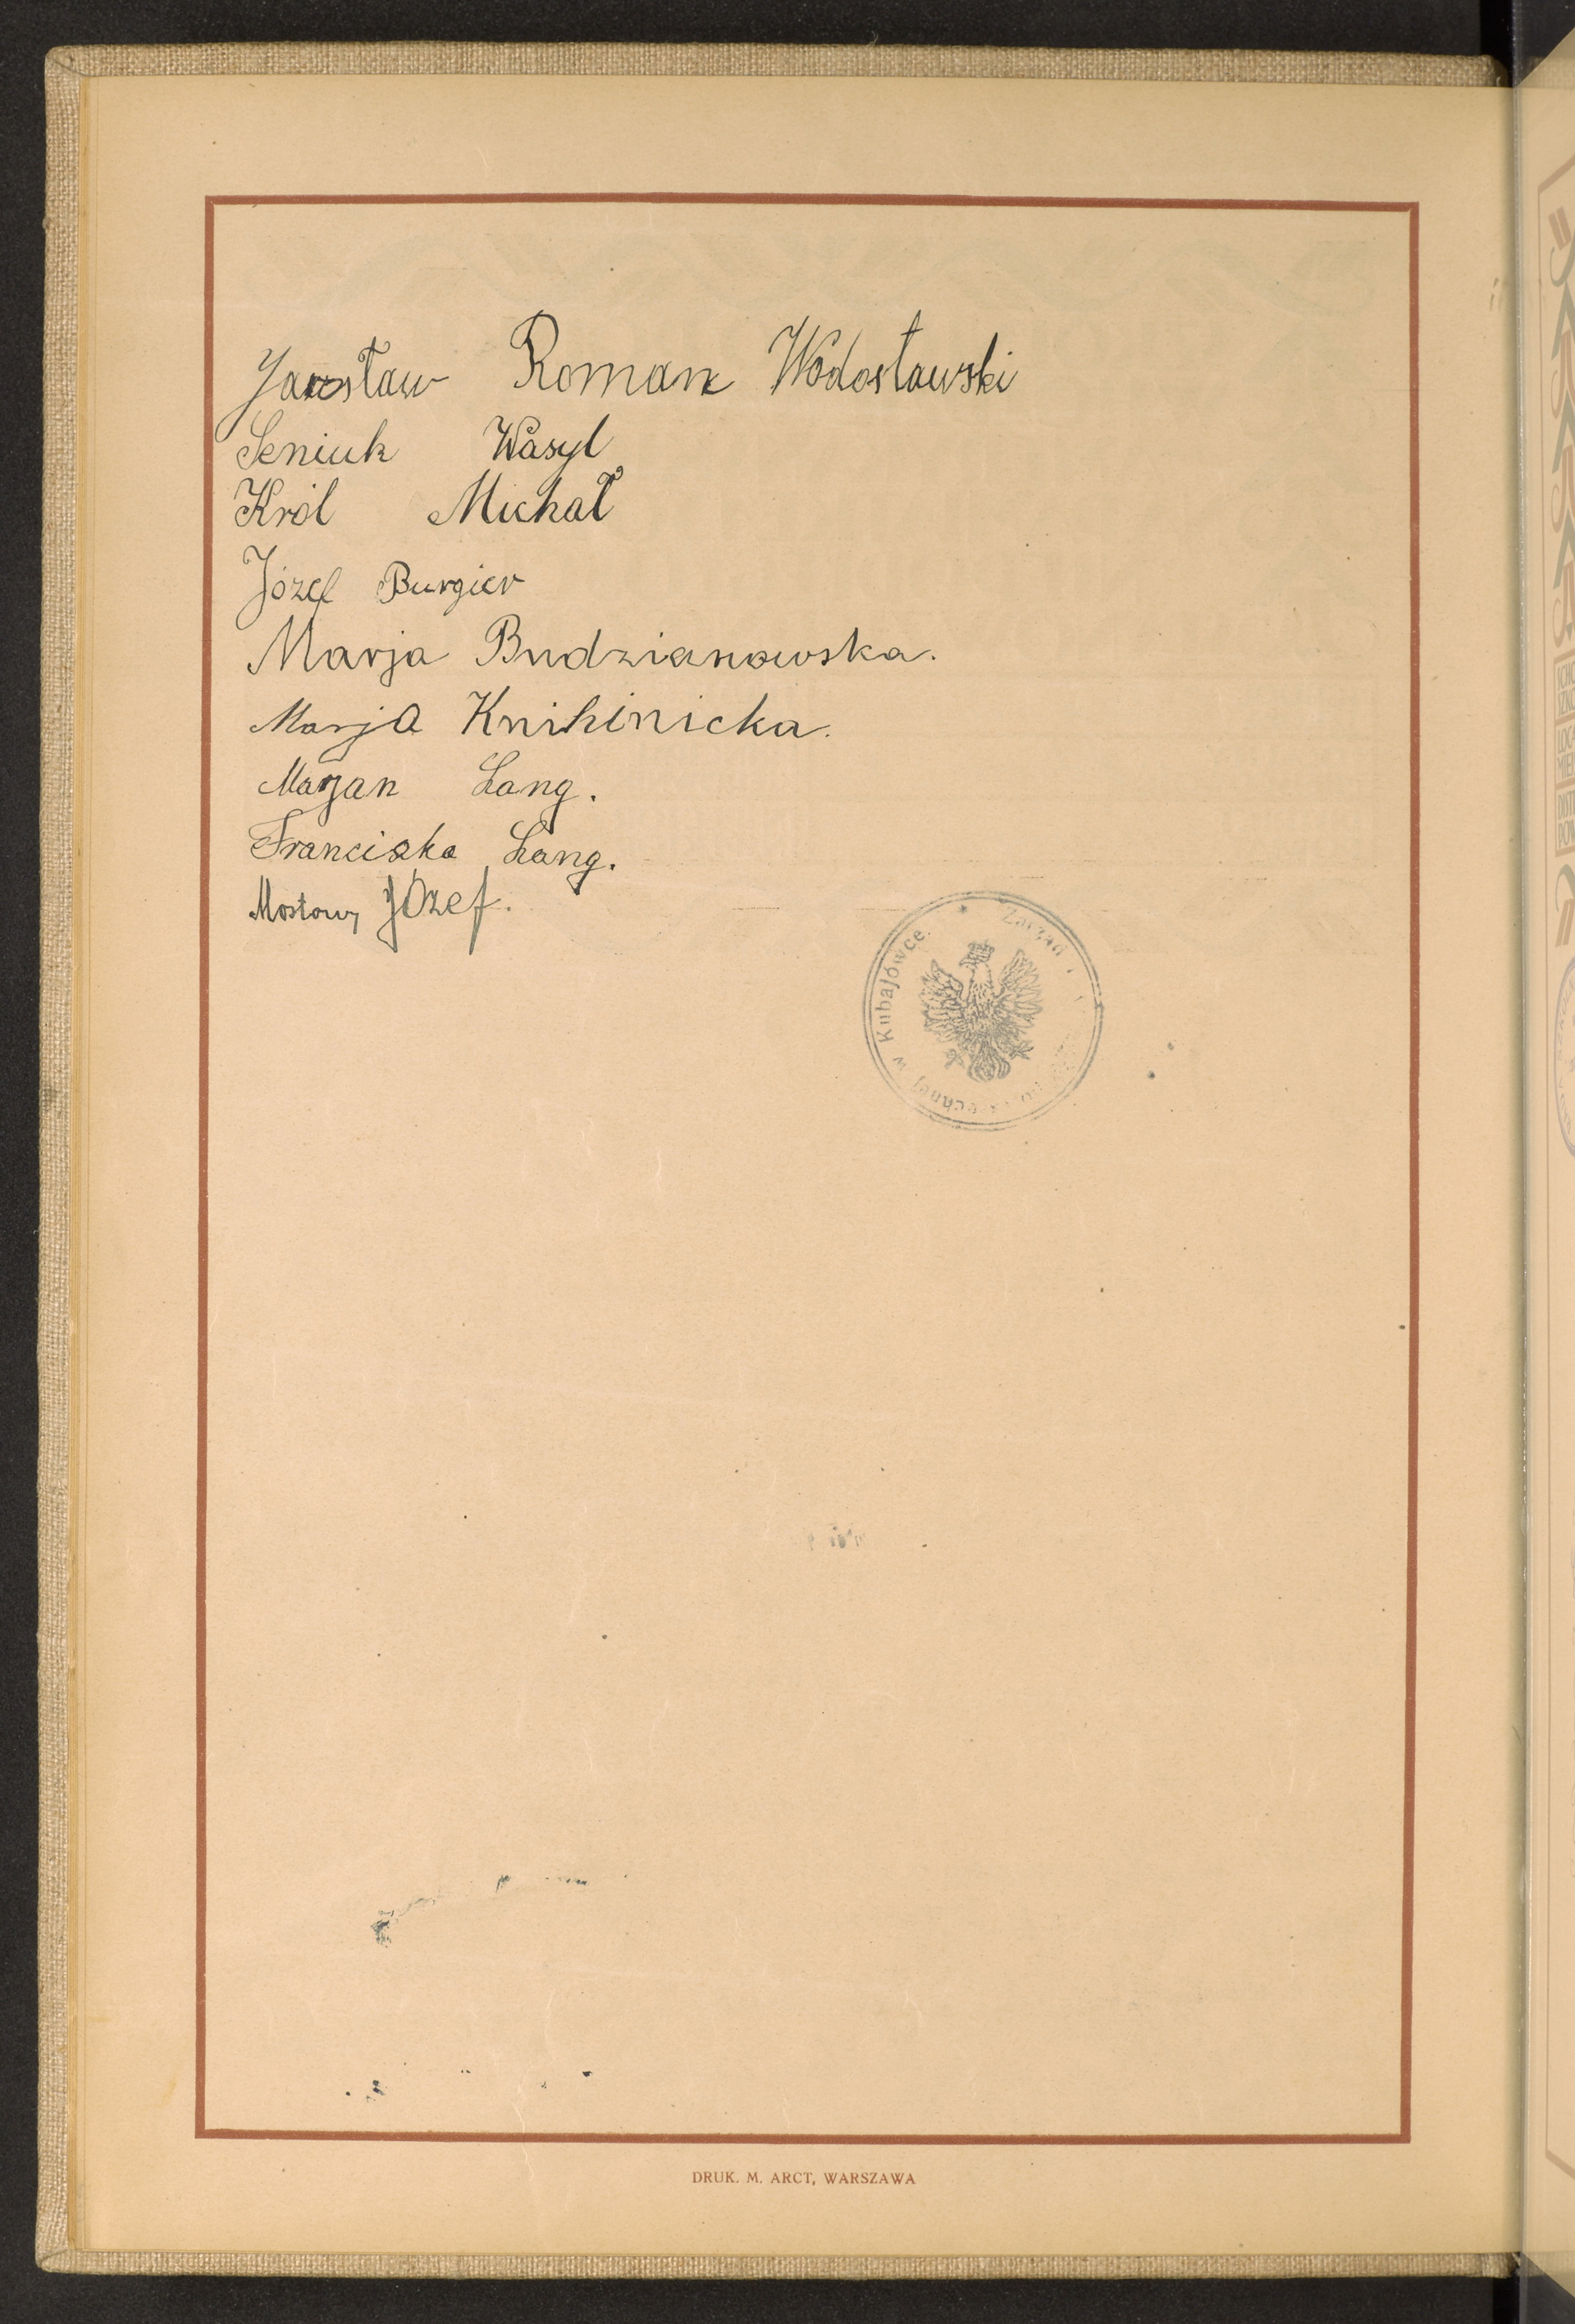 Jarosław Roman Wodosławski
Seniuk Wasyl
Król Michał
Józef Burgier
Marja Budzianowska.
Marja Knihinicka.
Marjan Lang.
Franciszka Lang.
Mostowy Józef.
Zarząd
w Kubajówce.
DRUK. M. ARCT, WARSZAWA